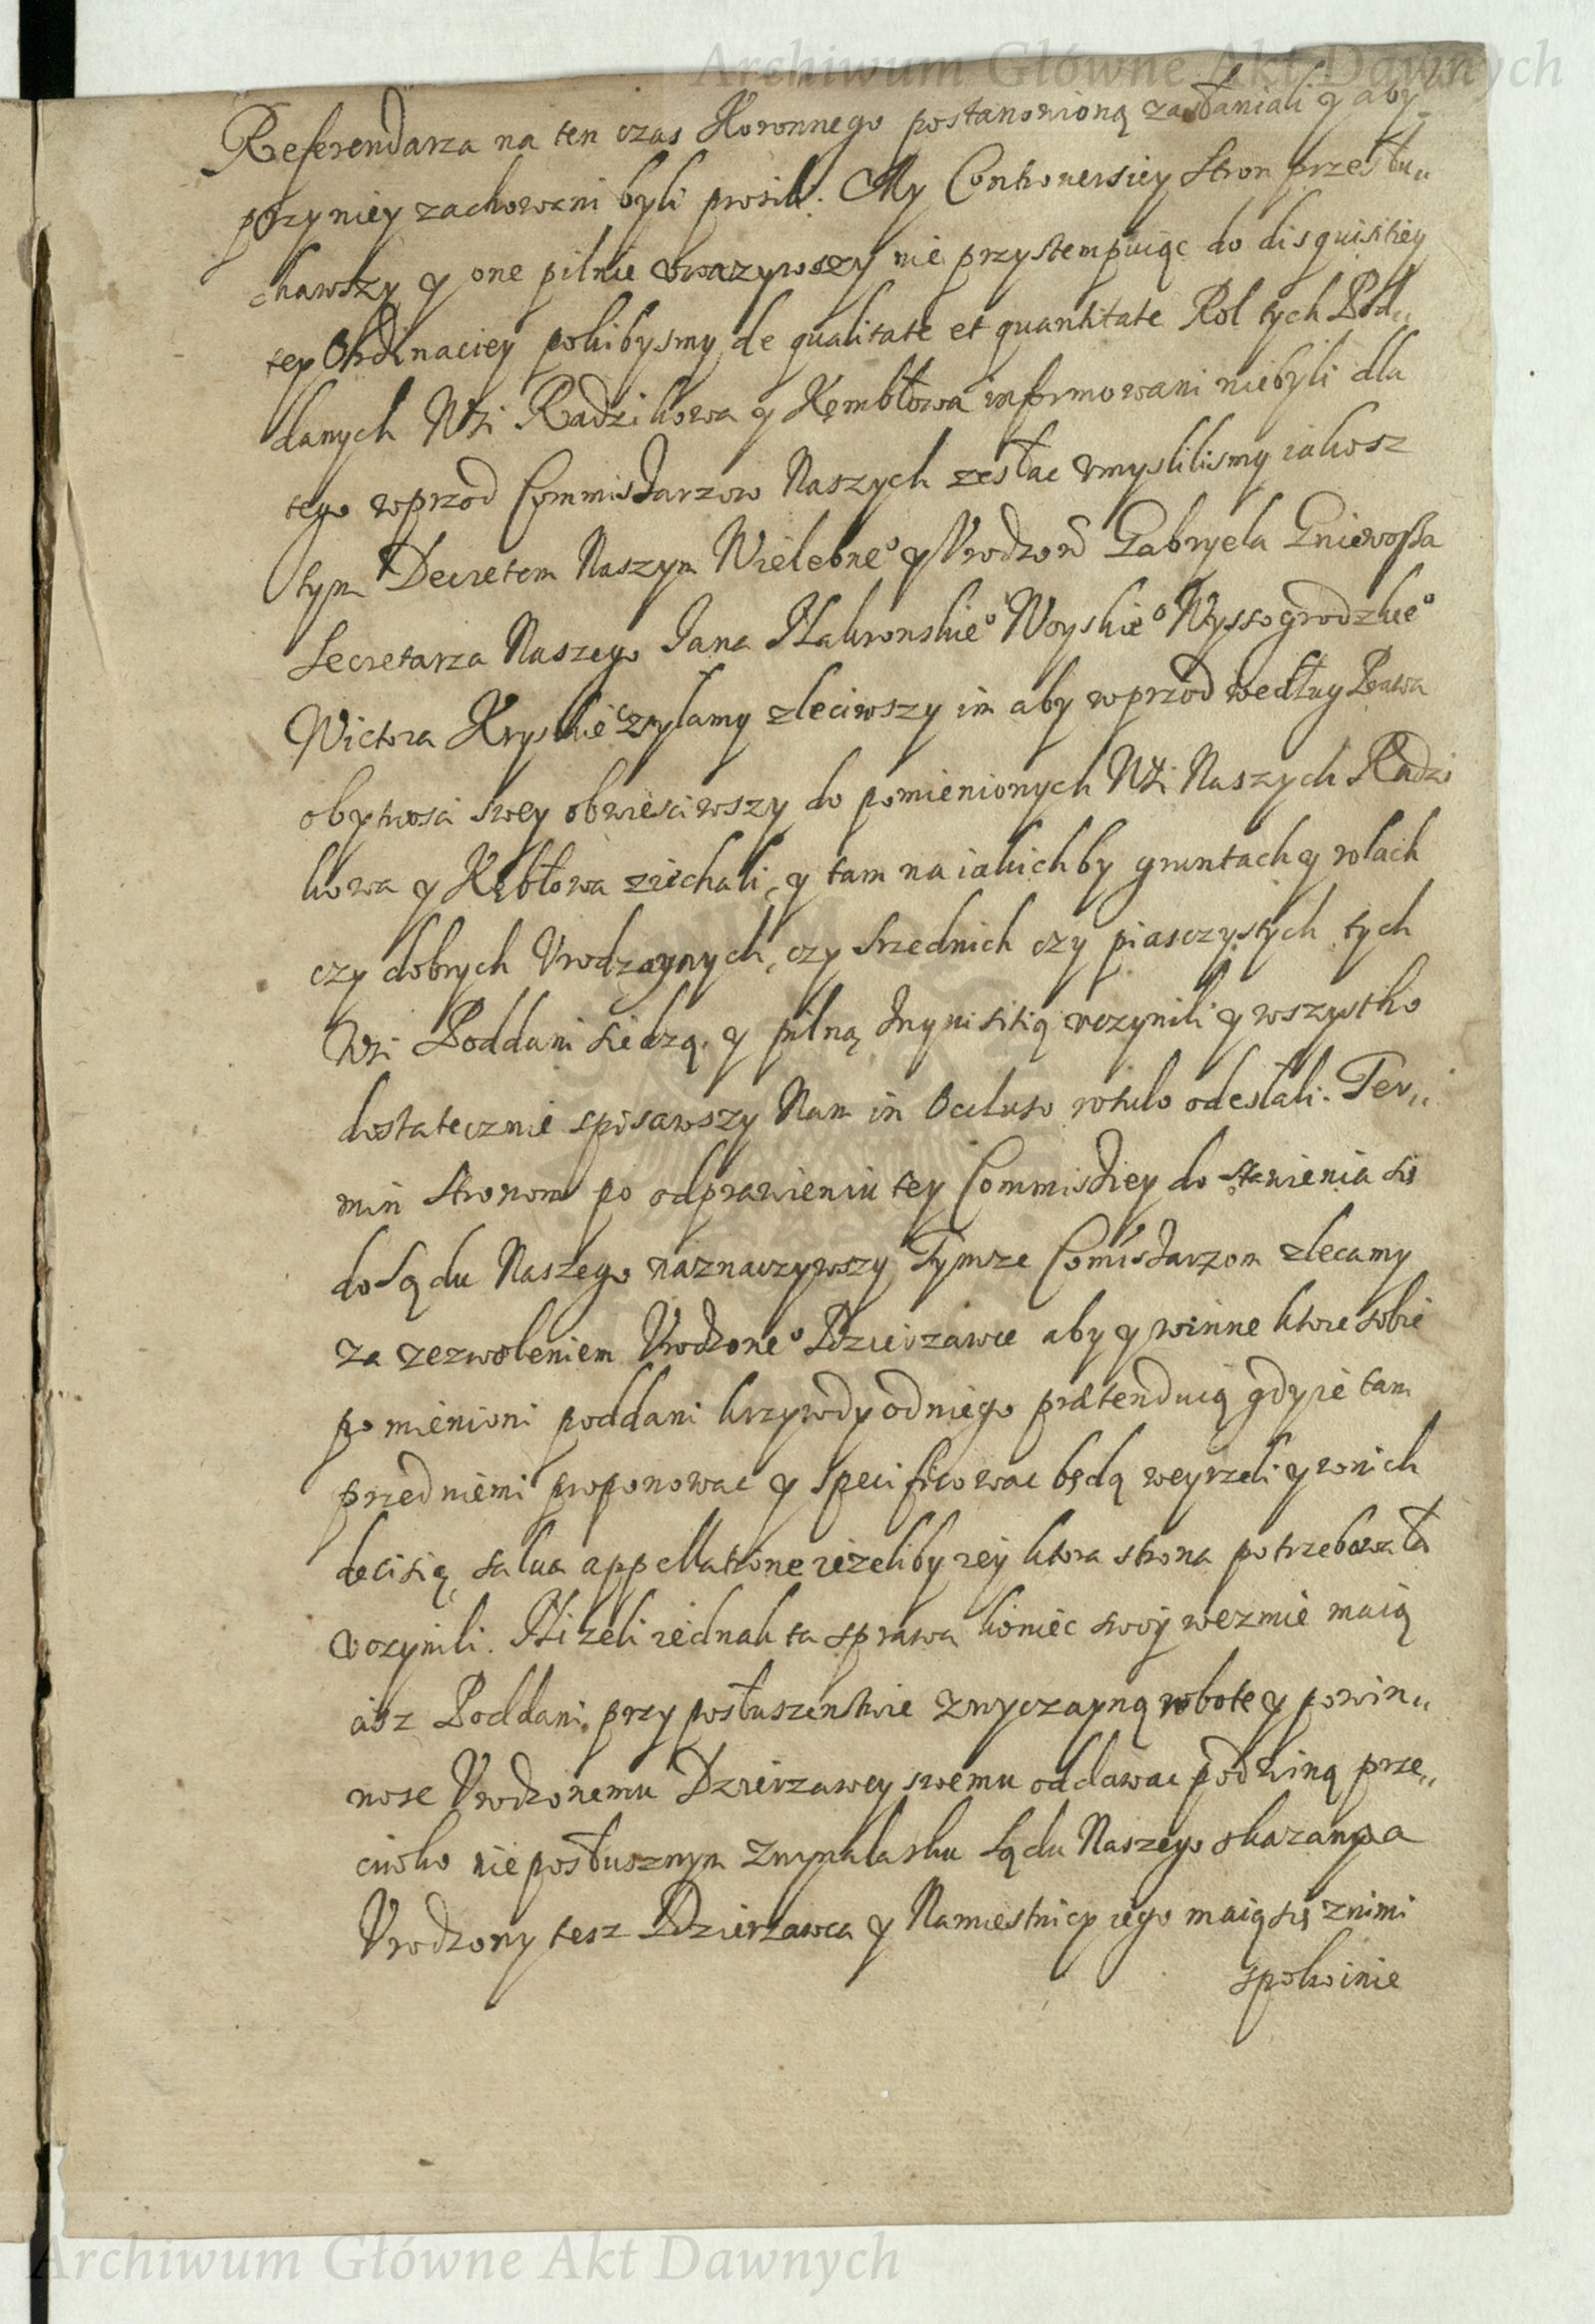 Archiwum Główne Akt Dawnych
Referendarza na ten czas Koronnego postanowioną zasłaniali y aby
przy niey zachowani byli prosili. My Controuersiey Stron przesłu„
chawszy y one pilnie vwazywszy nie przystempuiąc do disquisitiey
tey Ordinaciey pokibysmy de qualitate et quantitate Rol tych Pod„
danych Wsi Radzikowa y Kembłowa informowani niebyli dla
tego wprzod Commissarzow Naszych zesłac vmyslilismy iakosz
tym Decretem Naszym Wielebne° y Vrodzon Gabryela Gniewossa
Secretarza Naszego Jana Nakronskie° Woyskie° Wyssogrodzkie°
Wictora Kryskie° zsylamy zleciwszy im aby wprzod według Prawa
obytnosci swey obwiesciwszy do pomienionych Wsi Naszych Radzi
kowa y Kębłowa ziechali, y tam na iakichby gruntach y rolach
czy dobrych Vrodzaynych, czy srzednich czy piasczystych tych
Wsi Poddani siedzą. y pilną Inquisitią vczynili y wszystko
dostatecznie spisawszy Nam in Occluso rotulo odeslali. Ter„
min Stronom po odprawieniu tey Commissiey do stawienia się
do Sądu Naszego naznaczywszy Tymze Comissarzom zlecamy
za zezwoleniem Vrodzone° Dzierzawce aby y w inne ktore sobie
pomienioni poddani krzywdy od niego prætenduią gdy ie tam
przed niemi proponowac y specificowac będą weyrzeli y w nich
decisią salua appellatione iezeliby iey ktora strona potrzebowała
vczynili. Nizeli iednak ta sprawa koniec swoy wezmie maią
cisz Poddani przy posłuszenstwie zwyczayną robote y powin„
nosc Vrodzonemu Dzierzawcy swemu oddawac pod winą prze„
ciwko nieposłusznym z wynalasku Sądu Naszego skazaną a
Vrodzony tesz Dzierzawca y Namiestnicy iego maią się z nimi
spokoinie
Archiwum Główne Akt Dawnych